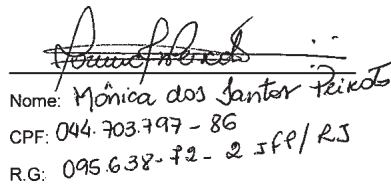 Nome: Mônica dos Santos Peixoto
CPF: 044.703.797-86
R.G: 095.638-72-2 IFP/RJ